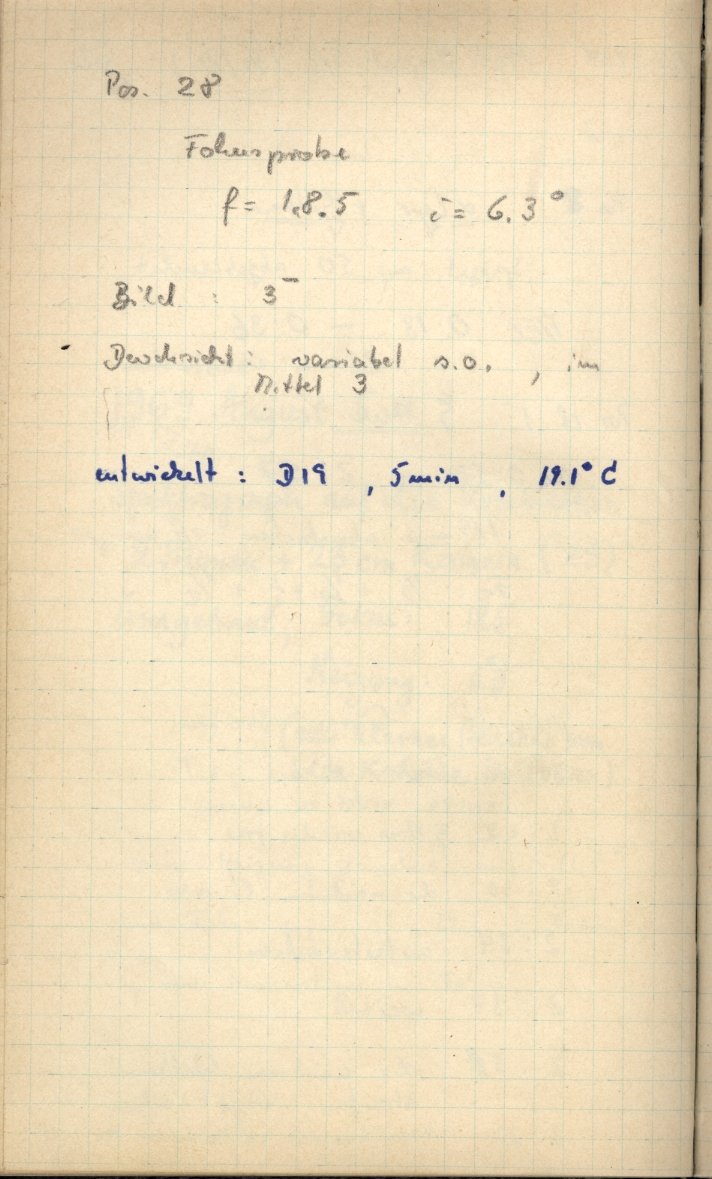 Pos. 28
Fokusprobe
f = 18.5 i = 6.3°
Bild : 3⁻
Durchsicht : variabel s.o. , im
Mittel 3
entwickelt : D19 , 5 min , 19.1° C